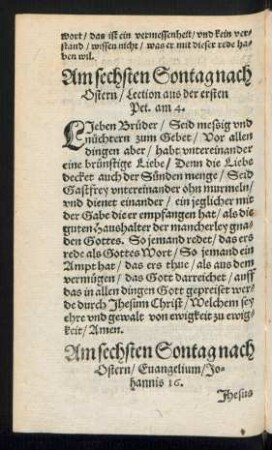 wort / das ist ein vermessenheit / vnd kein ver-
stand / wissen nicht / was er mit dieser rede ha-
ben wil.
Am sechsten Sontag nach
Ostern / Lection aus der ersten
Pet. am 4.
LJeben Brüder / Seid messig vnd
nüchtern zum Gebet / Vor allen
dingen aber / habt vntereinander
eine brünstige Liebe / Denn die Liebe
decket auch der Sünden menge / Seid
Gastfrey vntereinander ohn murmeln /
vnd dienet einander / ein jeglicher mit
der Gabe die er empfangen hat / als die
guten Haushalter der mancherley gna-
den Gottes. So jemand redet / das ers
rede als Gottes Wort / So jemand ein
Ampt hat / das ers thue / als aus dem
vermügen / das Gott darreichet / auff
das in allen dingen Gott gepreiset wer-
de durch Jhesum Christ / Welchem sey
ehre vnd gewalt von ewigkeit zu ewig-
keit / Amen.
Am sechsten Sontag nach
Ostern / Euangelium / Jo-
hannis 16.
Jhesus